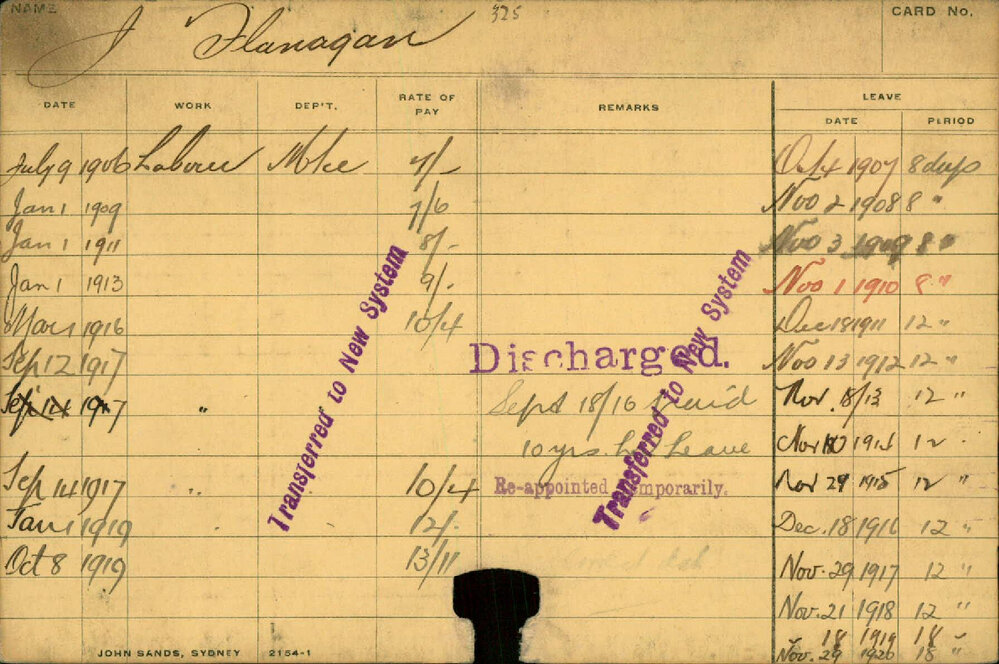 NAME
325
CARD No.
J Flanagan
DATE WORK DEP'T. RATE OF PAY REMARKS LEAVE
DATE PERIOD
July 9 1906 Labourer Mtce 7/- Oct 4 1907 8 days
Jan 1 1909 7/6 Nov 2 1908 8 "
Jan 1 1911 8/- Nov 3 1909 8 "
Jan 1 1913 9/- Nov 1 1910 8 "
Mar 1 1916 10/4 Dec 18 1911 12 "
Sep 12 1917 Discharged. Nov 13 1912 12 "
Sep 14 1917 " Sept 18/16 Nov. 8/13 12 "
10 yrs Leave Nov 1914 12 "
Sep 14 1917 " 10/4 Re-appointed temporarily. Nov 29 1915 12 "
Jan 1 1919 12/- Dec. 18 1916 12 "
Oct 8 1919 13/11 Nov. 29 1917 12 "
Nov. 21 1918 12 "
18 1919 18 "
Nov. 29 1920 18 "
Transferred to New System
Transferred to New System
JOHN SANDS, SYDNEY 2154-1